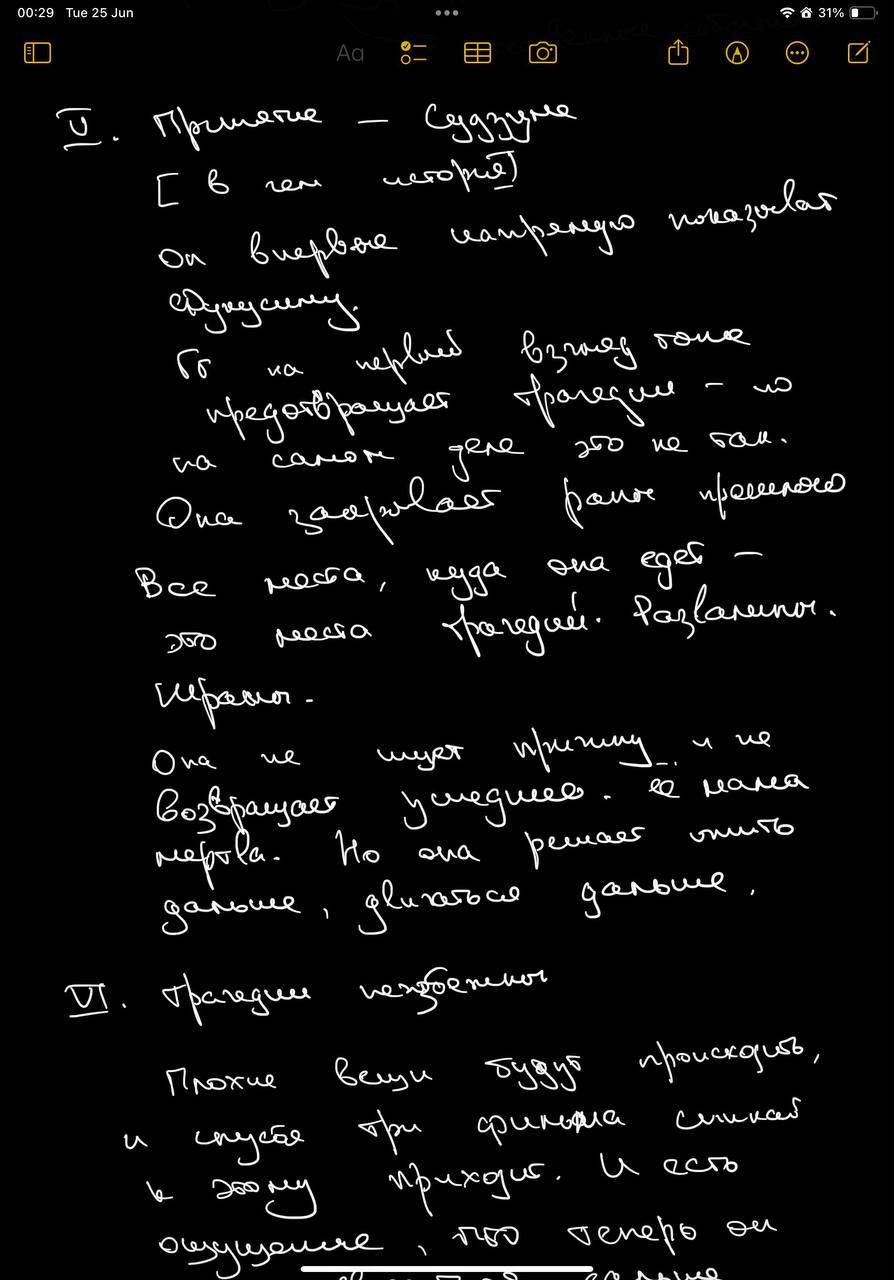 00:29 Tue 25 Jun
31%
Aa
V. Принятие — Судзуме
[в чем история]
Он впервые напрямую показывает
Фукусиму.
ГГ на первый взгляд тоже
предотвращает трагедии – но
на самом деле это не так.
Она закрывает раны прошлого
Все места, куда она едет —
это места трагедий. Развалины.
Шрамы.
Она не ищет причину и не
возвращает ушедшее. Её мама
мертва. Но она решает жить
дальше, двигаться дальше.
VI. Трагедии неизбежны
Плохие вещи будут происходить,
и спустя три фильма Синкай
к этому приходит. И есть
ощущение, что теперь он
дальше